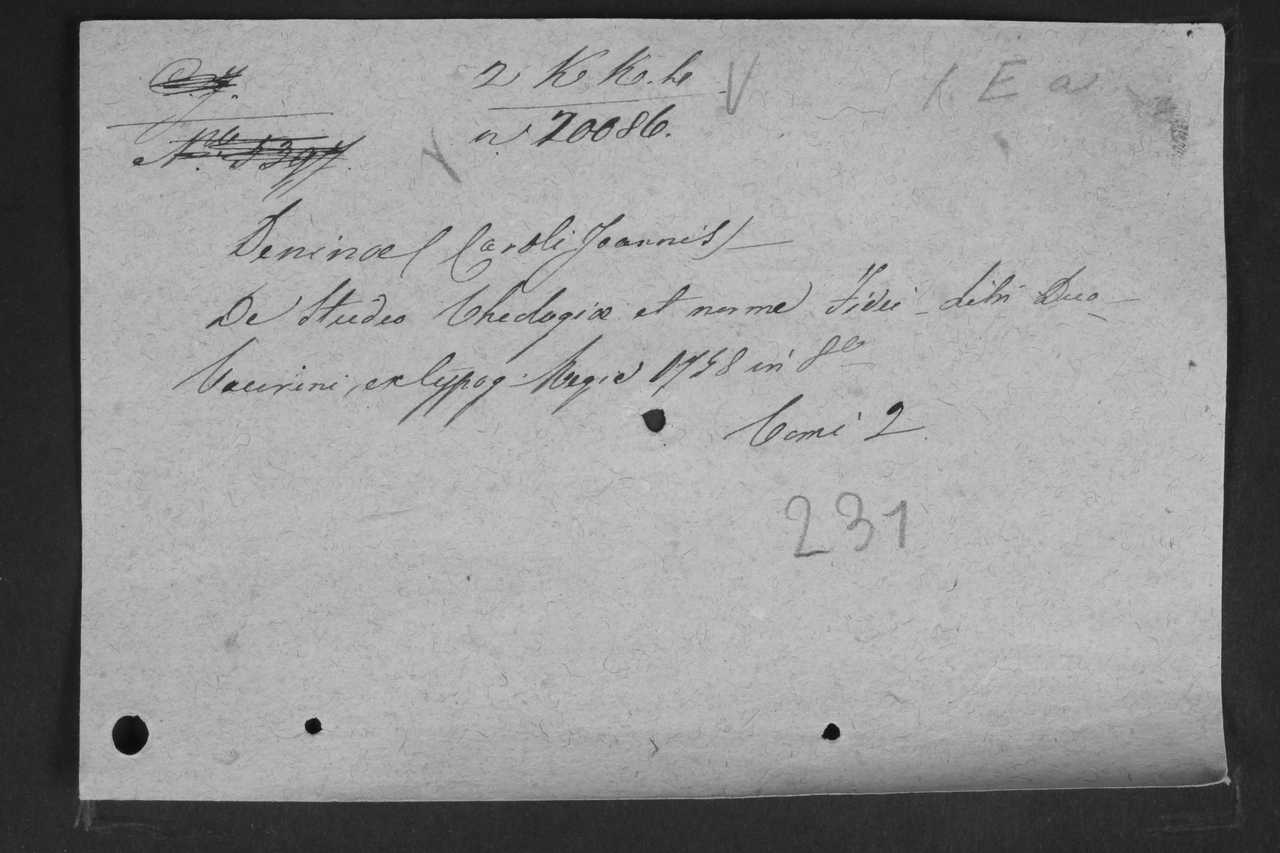 2 K K. b
n 20086.
Deninæ (Caroli Joannis)
De Studio Theologiæ et norma Fidei Libri Duo
Taurini, ex typog. Regia 1758 in 8º
Tomi 2
231